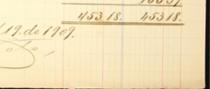 453 18. 453 18.
19. de 1909.